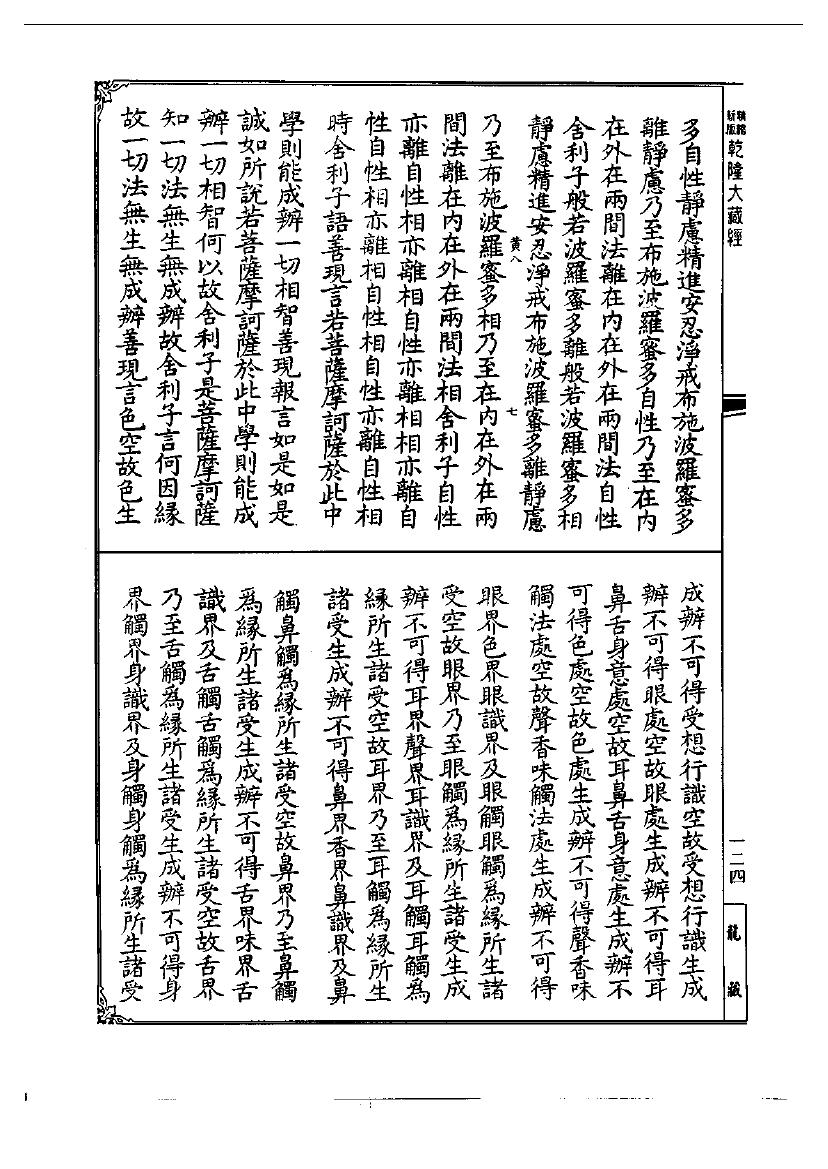 乾隆大藏經
多自性靜慮精進安忍淨戒布施波羅蜜多
離靜慮乃至布施波羅蜜多自性乃至在內
在外在兩間法離在內在外在兩間法自性
舍利子般若波羅蜜多離般若波羅蜜多相
靜慮精進安忍淨戒布施波羅蜜多離靜慮
黃八
七
乃至布施波羅蜜多相乃至在內在外在兩
間法離在內在外在兩間法相舍利子自性
亦離自性相亦離相自性亦離相相亦離自
性自性相亦離相自性相自性亦離自性相
時舍利子語善現言若菩薩摩訶薩於此中
學則能成辦一切相智善現報言如是如是
誠如所說若菩薩摩訶薩於此中學則能成
辦一切相智何以故舍利子是菩薩摩訶薩
知一切法無生無成辦故舍利子言何因緣
故一切法無生無成辦善現言色空故色生
成辦不可得受想行識空故受想行識生成
辦不可得眼處空故眼處生成辦不可得耳
鼻舌身意處空故耳鼻舌身意處生成辦不
可得色處空故色處生成辦不可得聲香味
觸法處空故聲香味觸法處生成辦不可得
眼界色界眼識界及眼觸眼觸爲緣所生諸
受空故眼界乃至眼觸爲緣所生諸受生成
辦不可得耳界聲界耳識界及耳觸耳觸爲
緣所生諸受空故耳界乃至耳觸爲緣所生
諸受生成辦不可得鼻界香界鼻識界及鼻
觸鼻觸爲緣所生諸受空故鼻界乃至鼻觸
爲緣所生諸受生成辦不可得舌界味界舌
識界及舌觸舌觸爲緣所生諸受空故舌界
乃至舌觸爲緣所生諸受生成辦不可得身
界觸界身識界及身觸身觸爲緣所生諸受
一二四
龍藏